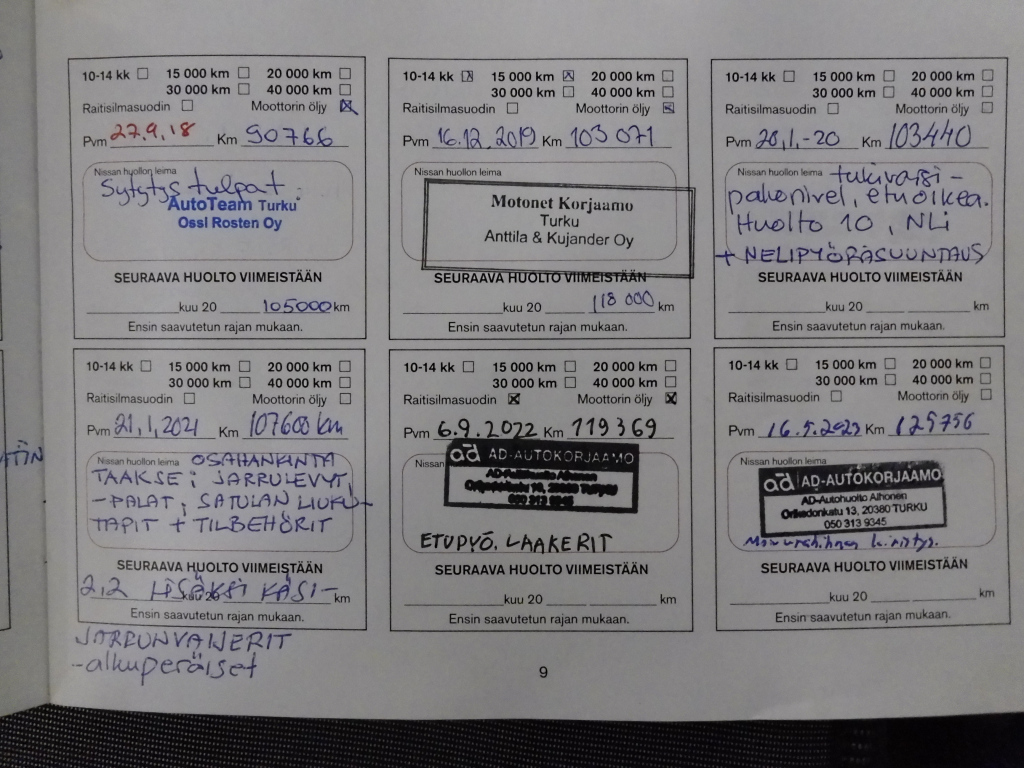 10-14 kk 15 000 km 20 000 km
30 000 km 40 000 km
Raitisilmasuodin Moottorin öljy
Pvm 27.9.18 Km 90766
Nissan huollon leima
Sytytys tulpat
AutoTeam Turku
Ossi Rosten Oy
SEURAAVA HUOLTO VIIMEISTÄÄN
kuu 20 105000 km
Ensin saavutetun rajan mukaan.
10-14 kk 15 000 km 20 000 km
30 000 km 40 000 km
Raitisilmasuodin Moottorin öljy
Pvm 16.12.2019 Km 103 071
Nissan huollon leima
Motonet Korjaamo
Turku
Anttila & Kujander Oy
SEURAAVA HUOLTO VIIMEISTÄÄN
kuu 20 118 000 km
Ensin saavutetun rajan mukaan.
10-14 kk 15 000 km 20 000 km
30 000 km 40 000 km
Raitisilmasuodin Moottorin öljy
Pvm 28.1.-20 Km 103440
Nissan huollon leima tukivarsi-
pallonivel, etuoikea.
Huolto 10, NLi
+ NELIPYÖRÄSUUNTAUS
SEURAAVA HUOLTO VIIMEISTÄÄN
kuu 20 km
Ensin saavutetun rajan mukaan.
10-14 kk 15 000 km 20 000 km
30 000 km 40 000 km
Raitisilmasuodin Moottorin öljy
Pvm 21.1.2021 Km 107600 km
Nissan huollon leima OSAHANKINTA
TAAKSE: JARRULEVYT,
-PALAT, SATULAN LIUKU-
TAPIT + TILBEHÖRIT
SEURAAVA HUOLTO VIIMEISTÄÄN
2.2 LISÄKSI KÄSI-
kuu 20 km
Ensin saavutetun rajan mukaan.
JARRUNVAIJERIT
-alkuperäiset
10-14 kk 15 000 km 20 000 km
30 000 km 40 000 km
Raitisilmasuodin Moottorin öljy
Pvm 6.9.2022 Km 119369
Nissan
ad AD-AUTOKORJAAMO
AD-Autohuolto Alhonen
Orikedonkatu 13, 20380 TURKU
050 313 9345
ETUPYÖ. LAAKERIT
SEURAAVA HUOLTO VIIMEISTÄÄN
kuu 20 km
Ensin saavutetun rajan mukaan.
10-14 kk 15 000 km 20 000 km
30 000 km 40 000 km
Raitisilmasuodin Moottorin öljy
Pvm 16.5.2023 Km 125756
Nissan huollon leima
ad AD-AUTOKORJAAMO
AD-Autohuolto Alhonen
Orikedonkatu 13, 20380 TURKU
050 313 9345
kiristys.
SEURAAVA HUOLTO VIIMEISTÄÄN
kuu 20 km
Ensin saavutetun rajan mukaan.
9